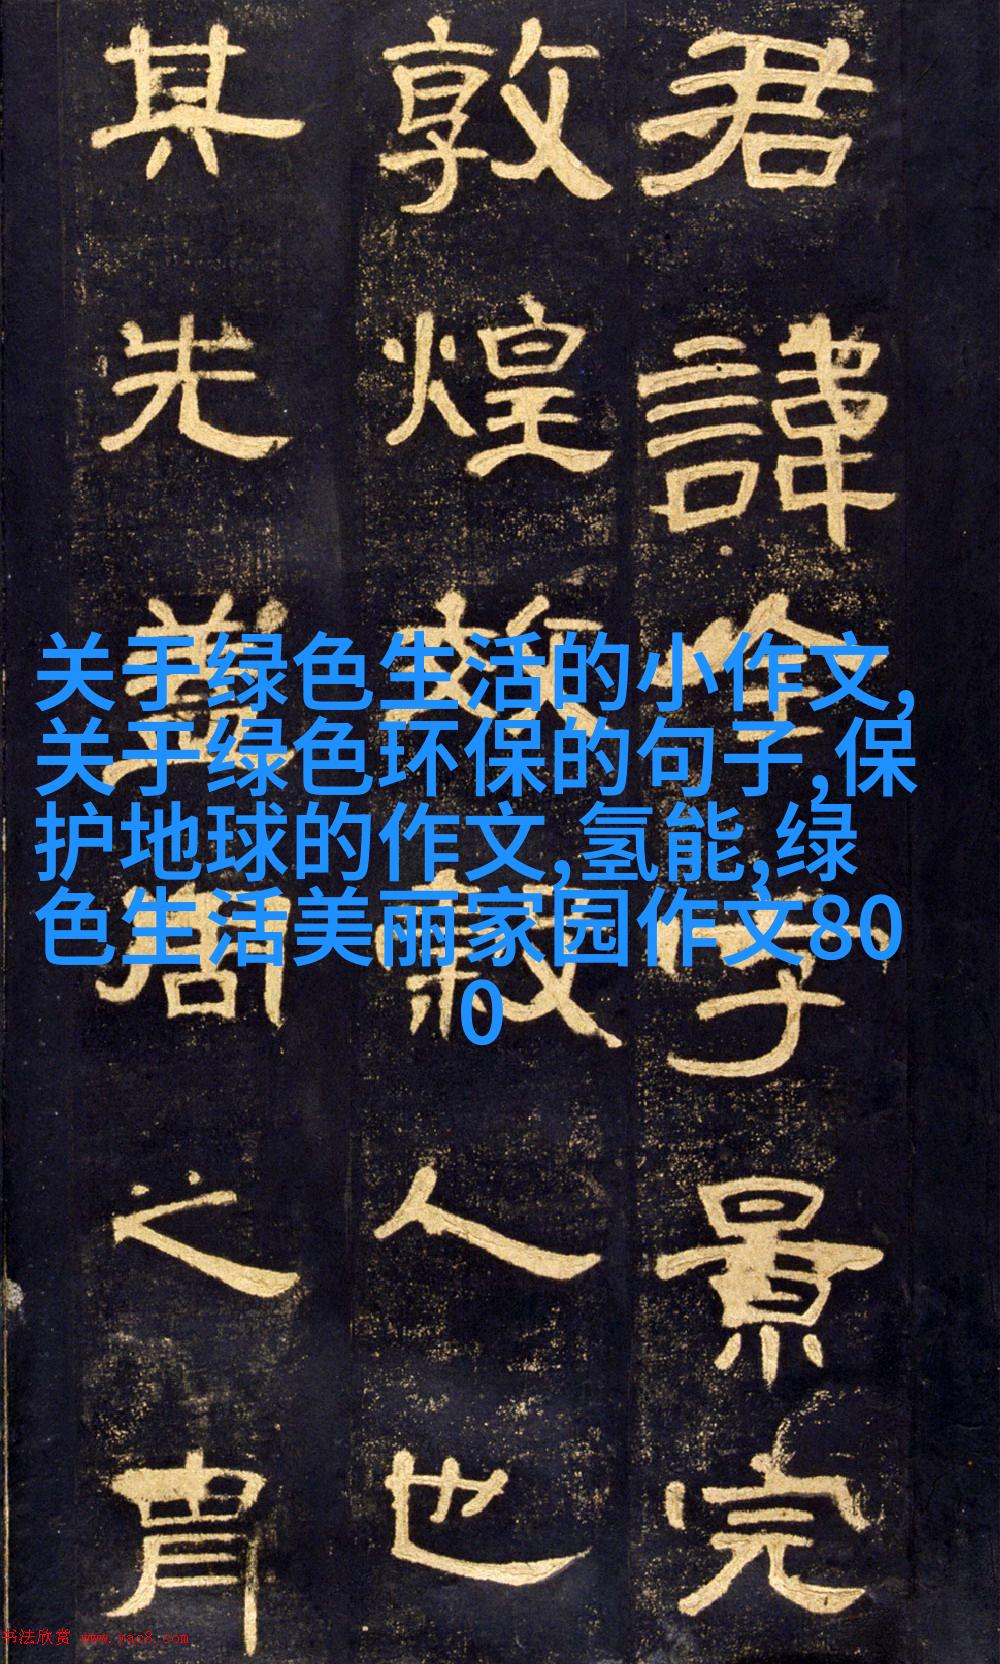 君諱全字景完
敦煌效穀人也
其先蓋周之胄
关于绿色生活的小作文,
关于绿色环保的句子,保
护地球的作文,氢能,绿
色生活美丽家园作文80
0
书法欣赏 www.yac8.com